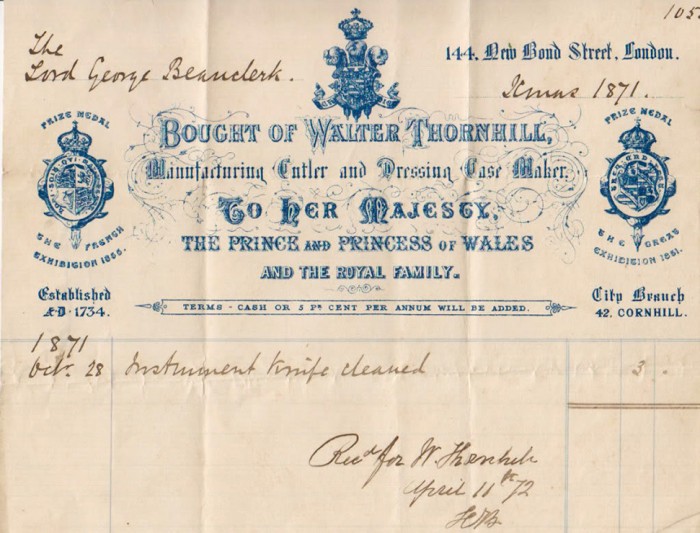 105
The
Lord George Beauclerk.
144. New Bond Street, London.
Xmas 1871.
PRIZE MEDAL
THE FRENCH
EXHIBITION 1855.
BOUGHT OF WALTER THORNHILL,
Manufacturing Cutler and Dressing Case Maker,
TO HER MAJESTY,
THE PRINCE AND PRINCESS OF WALES
AND THE ROYAL FAMILY.
PRIZE MEDAL
THE GREAT
EXHIBITION 1851.
Established
AD. 1734.
TERMS - CASH OR 5 PR CENT PER ANNUM WILL BE ADDED.
City Branch
42. CORNHILL.
1871
Oct. 28 Instrument Knife cleaned 3 .
Recd for W. Thornhill
April 11th 72